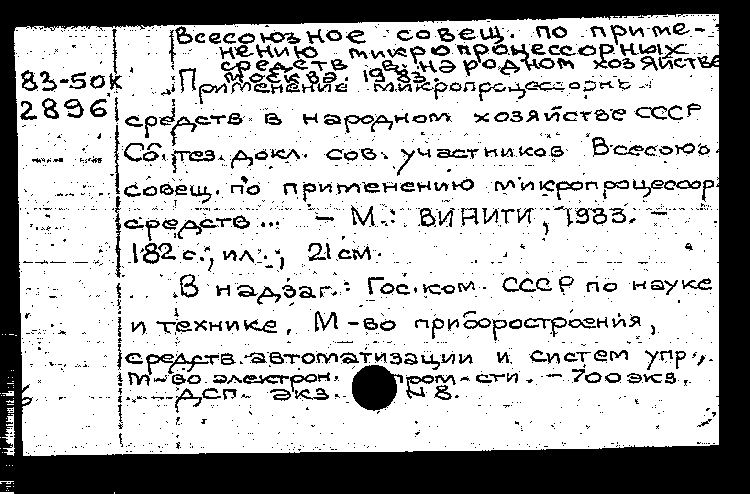 Всесоюзное совещ. по приме-
нению микропроцессорных
средств в народном хозяйстве
Москва. 1983.
83-50к
Применение микропроцессорн
2896
средств в народном хозяйстве СССР
Сб. тез. докл. сов. участников Всесоюз.
совещ. по применению микропроцессор
средств... - М.: ВИНИТИ, 1983. -
182 с.; ил.; 21 см.
В надзаг.: Гос. ком. СССР по науке
и технике, М-во приборостроения,
средств автоматизации и систем упр.,
М-во электрон. пром-сти. - 700 экз.
ДСП. экз. N 8.